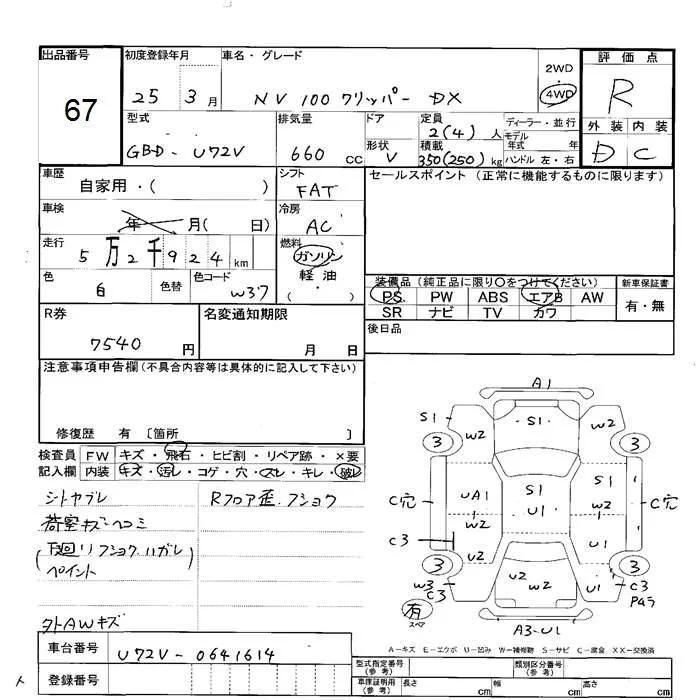 出品番号
67
初度登録年月
25 3月
車名・グレード
NV 100 クリッパー DX
2WD
4WD
評価点
R
外装 内装
D C
型式
GBD- U72V
排気量
660 CC
ドア
形状 V
定員
2(4) 人
積載
350(250) kg
ディーラー・並行
モデル年式 年
ハンドル 左・右
車歴
自家用・( )
シフト
FAT
セールスポイント (正常に機能するものに限ります)
車検
年 月( 日)
冷房
AC
走行
5万2千924 km
燃料
ガソリン
軽油
( )
色
白
色替
色コード
W37
装備品(純正品に限り○をつけてください)
PS PW ABS エアB AW
SR ナビ TV カワ
新車保証書
有・無
R券
7540 円
名変通知期限
月 日
後日品
注意事項申告欄(不具合内容等は具体的に記入して下さい)
修復歴 有 〔箇所 〕
検査員記入欄
FW キズ・飛石・ヒビ割・リペア跡・×要
内装 キズ・汚レ・コゲ・穴・スレ・キレ・破レ
シトヤブレ
荷室キズヘコミ
(下回リフショクハガレ
ペイント
外AWキズ
Rフロア歪.フショク
A1
S1
W2
S1
W2
3
3
C穴
UA1
S1
W2
C穴
W2
U1
C3
U2
U1
3
3
U2
W2
U1
W3
C3
C3
PAラ
有
スペア
A3-U1
A-キズ E-エクボ U-凹み W-補修跡 S-サビ C-腐食 XX-交換済
車台番号
U72V-0641614
登録番号
型式指定番号(参考)
類別区分番号(参考)
車庫証明用(参考)
長さ cm
幅 cm
高さ cm